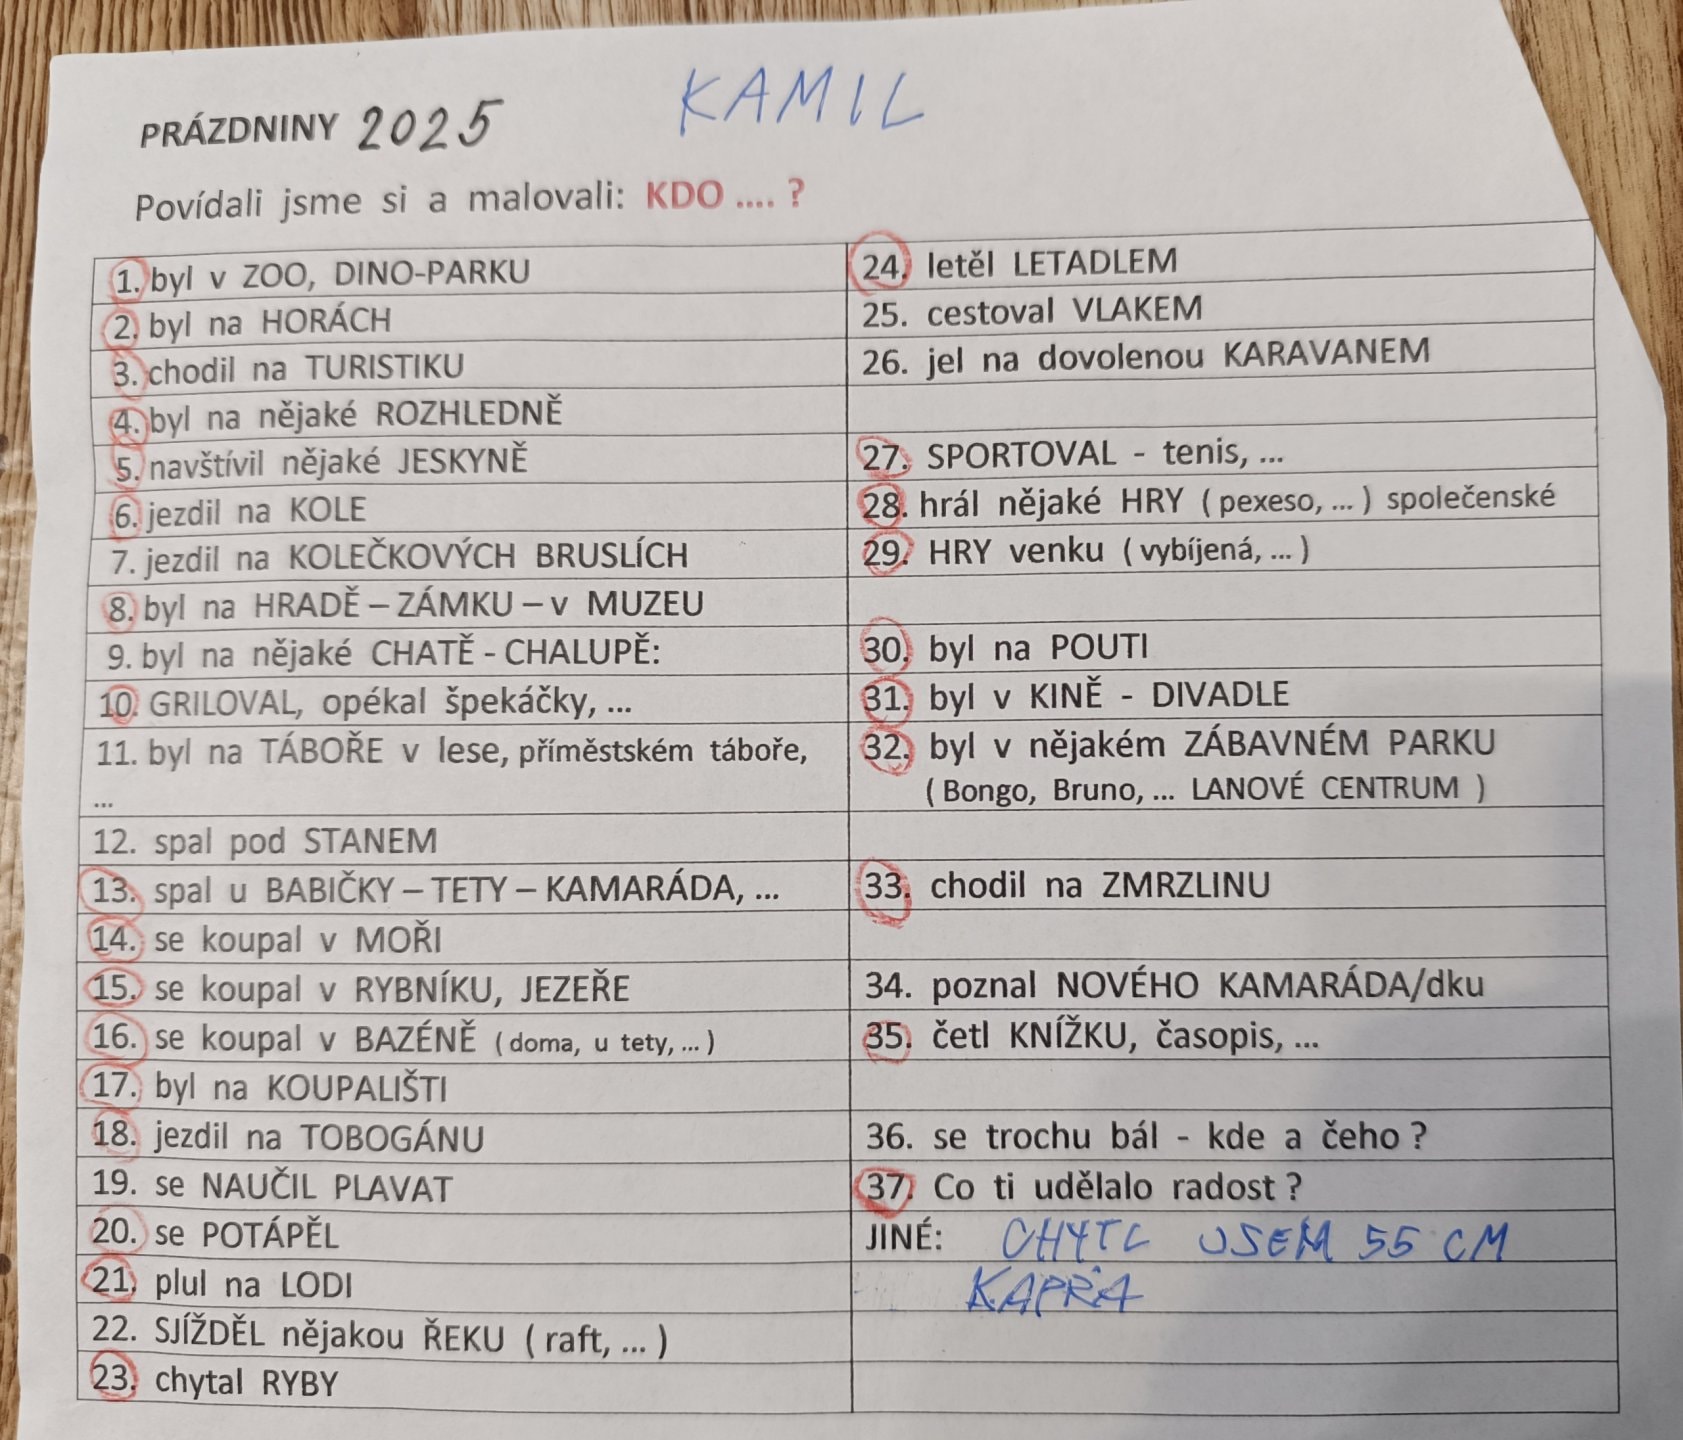 KAMIL
PRÁZDNINY 2025
Povídali jsme si a malovali: KDO .... ?
1. byl v ZOO, DINO-PARKU
2. byl na HORÁCH
3. chodil na TURISTIKU
4. byl na nějaké ROZHLEDNĚ
5. navštívil nějaké JESKYNĚ
6. jezdil na KOLE
7. jezdil na KOLEČKOVÝCH BRUSLÍCH
8. byl na HRADĚ – ZÁMKU – v MUZEU
9. byl na nějaké CHATĚ - CHALUPĚ:
10. GRILOVAL, opékal špekáčky, ...
11. byl na TÁBOŘE v lese, příměstském táboře,
...
12. spal pod STANEM
13. spal u BABIČKY – TETY – KAMARÁDA, ...
14. se koupal v MOŘI
15. se koupal v RYBNÍKU, JEZEŘE
16. se koupal v BAZÉNĚ ( doma, u tety, ... )
17. byl na KOUPALIŠTI
18. jezdil na TOBOGÁNU
19. se NAUČIL PLAVAT
20. se POTÁPĚL
21. plul na LODI
22. SJÍŽDĚL nějakou ŘEKU ( raft, ... )
23. chytal RYBY
24. letěl LETADLEM
25. cestoval VLAKEM
26. jel na dovolenou KARAVANEM
27. SPORTOVAL - tenis, ...
28. hrál nějaké HRY ( pexeso, ... ) společenské
29. HRY venku ( vybíjená, ... )
30. byl na POUTI
31. byl v KINĚ - DIVADLE
32. byl v nějakém ZÁBAVNÉM PARKU
( Bongo, Bruno, ... LANOVÉ CENTRUM )
33. chodil na ZMRZLINU
34. poznal NOVÉHO KAMARÁDA/dku
35. četl KNÍŽKU, časopis, ...
36. se trochu bál - kde a čeho ?
37. Co ti udělalo radost ?
JINÉ: CHYTL JSEM 55 CM
KAPRA